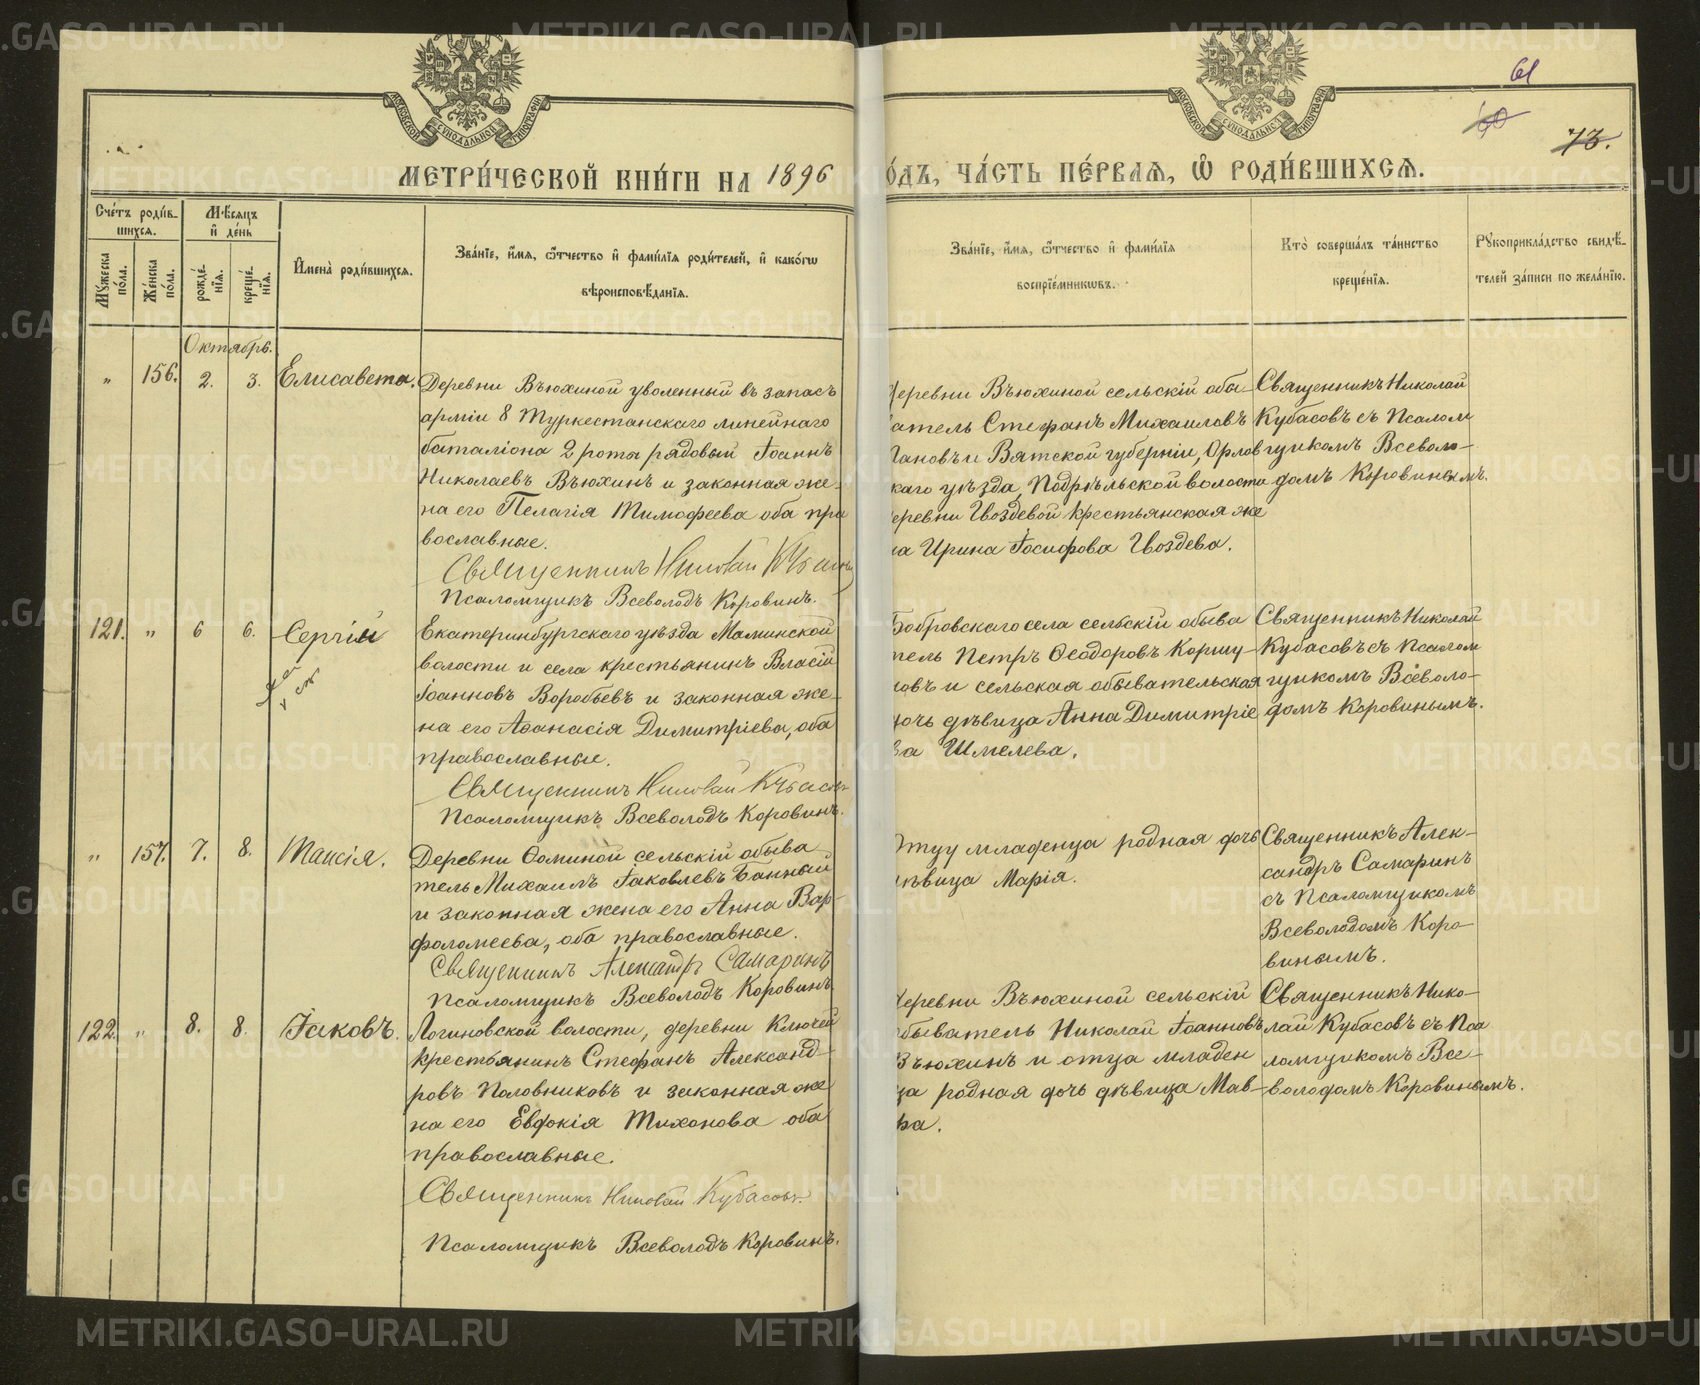 МЕТРИ́ЧЕСКОЙ КНИ́ГИ НА 1896
О́ДЪ, ЧА́СТЬ ПЕ́РВАѦ, Ѡ҆ РОДИ́ВШИХСѦ.
61
73.
МОСКОВСКОЙ СѴНОДАЛЬНОЙ ТИПОГРАФІИ
МОСКОВСКОЙ СѴНОДАЛЬНОЙ ТИПОГРАФІИ
Сче́тъ роди́в-
шихсѧ.
Мѣ́сѧцъ
и҆ де́нь
Мꙋ́жеска
по́ла.
Же́нска
по́ла.
рожде́-
нїѧ.
креще́-
нїѧ.
И҆мена̀ роди́вшихсѧ.
Зва́нїе, и҆́мѧ, ѻ҆́тчество и҆ фами́лїѧ роди́телей, и҆ како́гѡ
вѣроисповѣ́данїѧ.
Зва́нїе, и҆́мѧ, ѻ҆́тчество и҆ фами́лїѧ
воспрїе́мникѡвъ.
Кто̀ соверша́лъ та́инство
креще́нїѧ.
Рꙋкоприкла́дство свидѣ́-
телей за́писи по жела́нїю.
Октябрь.
„ 156. 2. 3. Елисавета.
Деревни Вьюхиной уволенный въ запасъ
арміи 8 Туркестанскаго линейнаго
баталіона 2 роты рядовый Іоаннъ
Николаевъ Вьюхинъ и законная же-
на его Пелагія Тимофеева оба пра
вославные.
Священникъ Николай Кубасовъ
Псаломщикъ Всеволодъ Коровинъ.
Деревни Вьюхиной сельскій обы-
атель Стефанъ Михаиловъ
Пановъ и Вятской губерніи, Орлов
каго уѣзда, Подрѣльской волости
еревни Гвоздевой крестьянская же
на Ирина Іосифова Гвоздева.
Священникъ Николай
Кубасовъ съ Псалом
щикомъ Всеволо-
домъ Коровинымъ.
121. „ 6 6. Сергій
Екатеринбургскаго уѣзда Маминской
волости и села крестьянинъ Власій
Іоанновъ Воробьевъ и законная же-
на его Аѳанасія Димитріева, оба
православные.
Священникъ Николай Кубасовъ
Псаломщикъ Всеволодъ Коровинъ.
Бобровскаго села сельскій обыва
тель Петръ Ѳеодоровъ Коршу-
новъ и сельская обывательская
дочь дѣвица Анна Димитріе
ва Шмелева.
Священникъ Николай
Кубасовъ съ Псалом
щикомъ Всеволо-
домъ Коровинымъ.
„ 157. 7. 8. Таисія.
Деревни Ѳоминой сельскій обыва
тель Михаилъ Іаковлевъ Банный
и законная жена его Анна Вар-
фоломеева, оба православные.
Священникъ Александръ Самаринъ
Псаломщикъ Всеволодъ Коровинъ
Отцу младенца родная дочь
дѣвица Марія.
Священникъ Алек-
сандръ Самаринъ
съ Псаломщикомъ
Всеволодомъ Коро-
винымъ.
122. „ 8. 8. Іаковъ.
Логиновской волости, деревни Ключей
крестьянинъ Стефанъ Александ-
ровъ Половниковъ и законная же
на его Евдокія Тихонова оба
православные.
Священникъ Николай Кубасовъ.
Псаломщикъ Всеволодъ Коровинъ.
Деревни Вьюхиной сельскій
обыватель Николай Іоанновъ
Вьюхинъ и отца младен
ца родная дочь дѣвица Мав-
ра.
Священникъ Нико-
лай Кубасовъ съ Пса
ломщикомъ Все-
володомъ Коровинымъ.
METRIKI.GASO-URAL.RU